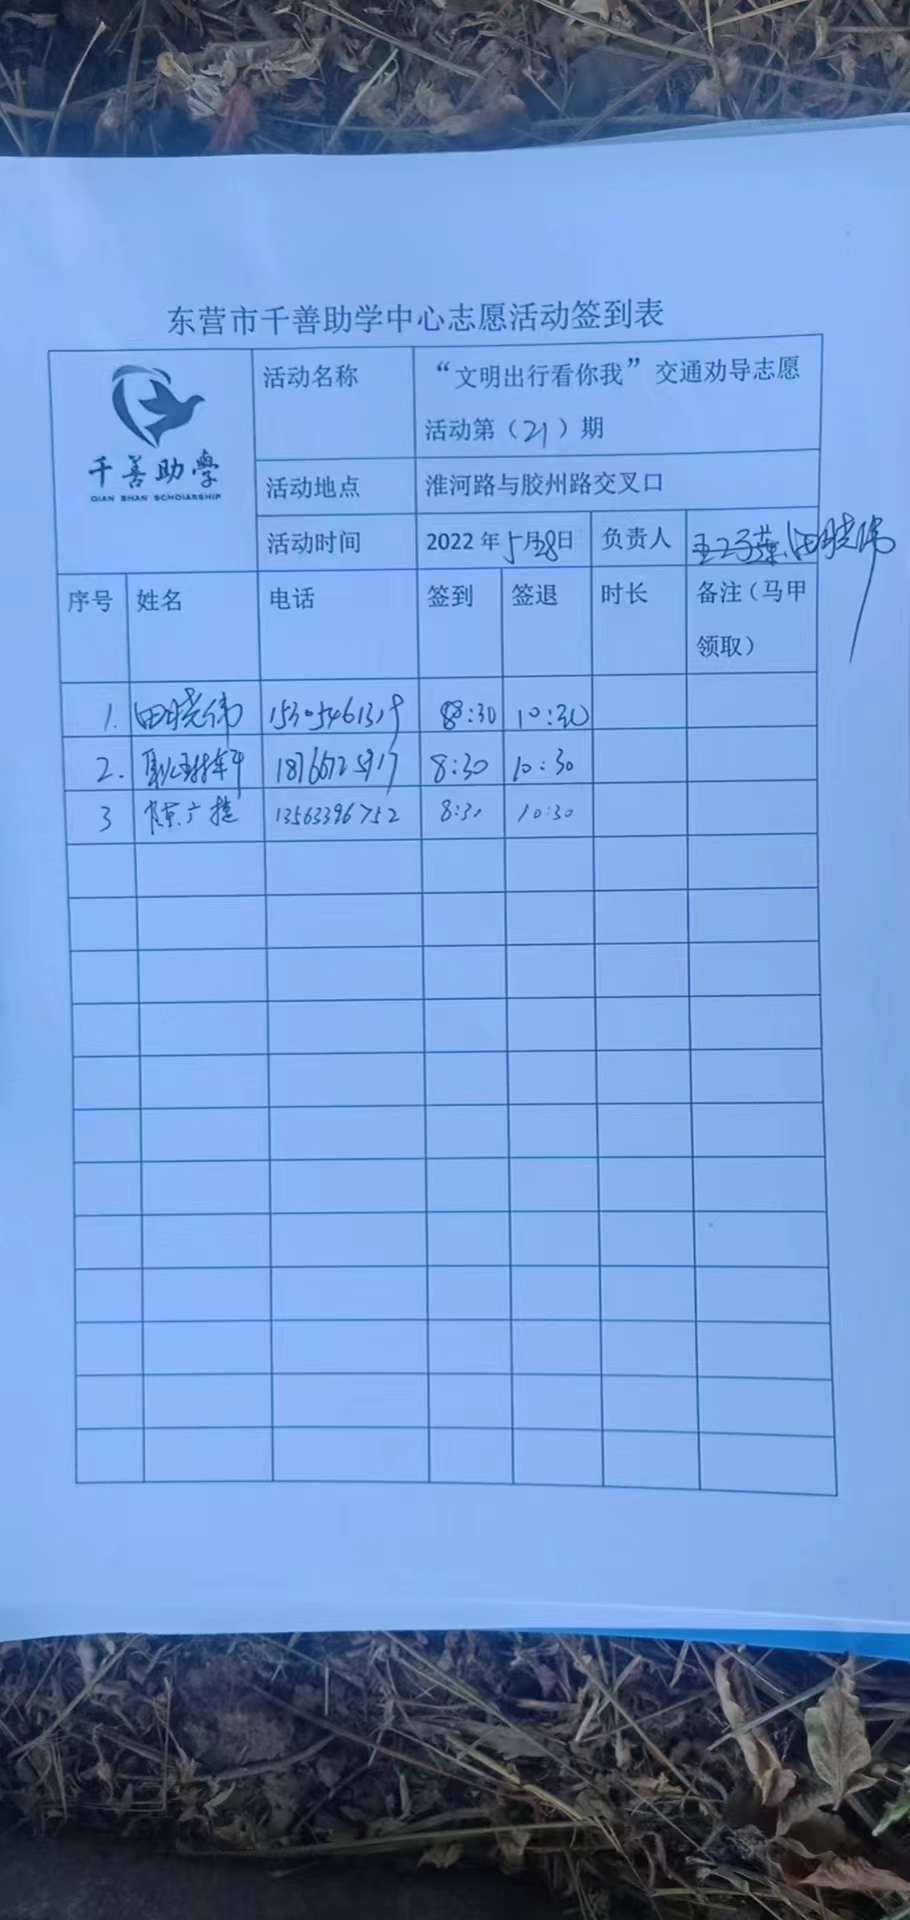 东营市千善助学中心志愿活动签到表
千善助學
QIAN SHAN SCHOLARSHIP
活动名称
“文明出行看你我”交通劝导志愿
活动第（21）期
活动地点
淮河路与胶州路交叉口
活动时间
2022年5月28日
负责人
田晓伟
序号 姓名 电话 签到 签退 时长 备注（马甲
领取）
1. 田晓伟 15305461319 8:30 10:30
2. 8:30 10:30
3 陈广捷 13563396752 8:30 10:30